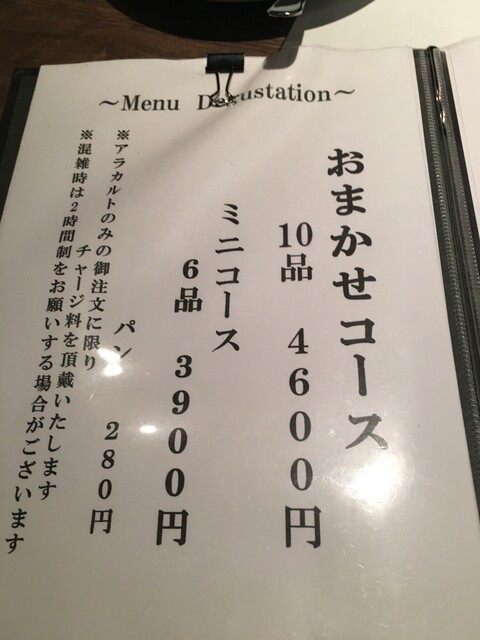 ～Menu Degustation～
おまかせコース
10品 4600円
ミニコース
6品 3900円
パン 280円
※アラカルトのみの御注文に限り
チャージ料を頂戴いたします
※混雑時は2時間制をお願いする場合がございます